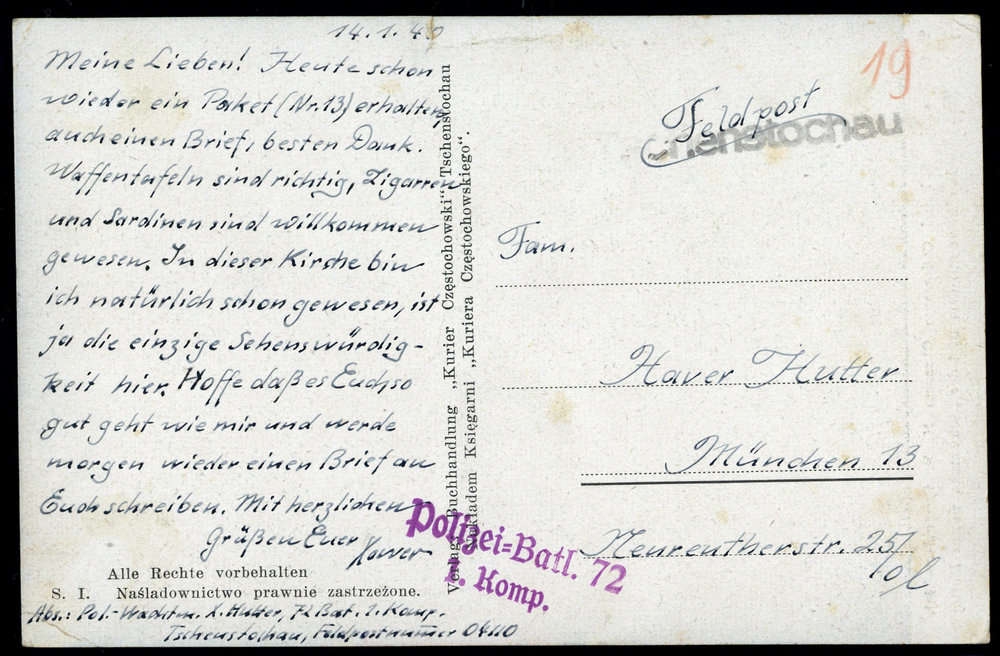 14.1.40
Meine Lieben! Heute schon
wieder ein Paket (Nr. 13) erhalten,
auch einen Brief, besten Dank.
Waffentafeln sind richtig, Zigarren
und Sardinen sind willkommen
gewesen. In dieser Kirche bin
ich natürlich schon gewesen, ist
ja die einzige Sehenswürdig-
keit hier. Hoffe daß es Euch so
gut geht wie mir und werde
morgen wieder einen Brief an
Euch schreiben. Mit herzlichen
Grüßen Euer Xaver
Alle Rechte vorbehalten
S. I. Naśladownictwo prawnie zastrzeżone.
Abs.: Pol.-Wachtm. X. Hutter, 72 Bat. 1. Komp.
Tschenstochau, Feldpostnummer 04110
Verlag: Buchhandlung „Kurier Częstochowski" Tschenstochau
Nakładem Księgarni „Kuriera Częstochowskiego".
Polizei=Batl. 72
1. Komp.
19
Feldpost
Fam.
Xaver Hutter
München 13
Neureutherstr. 25/